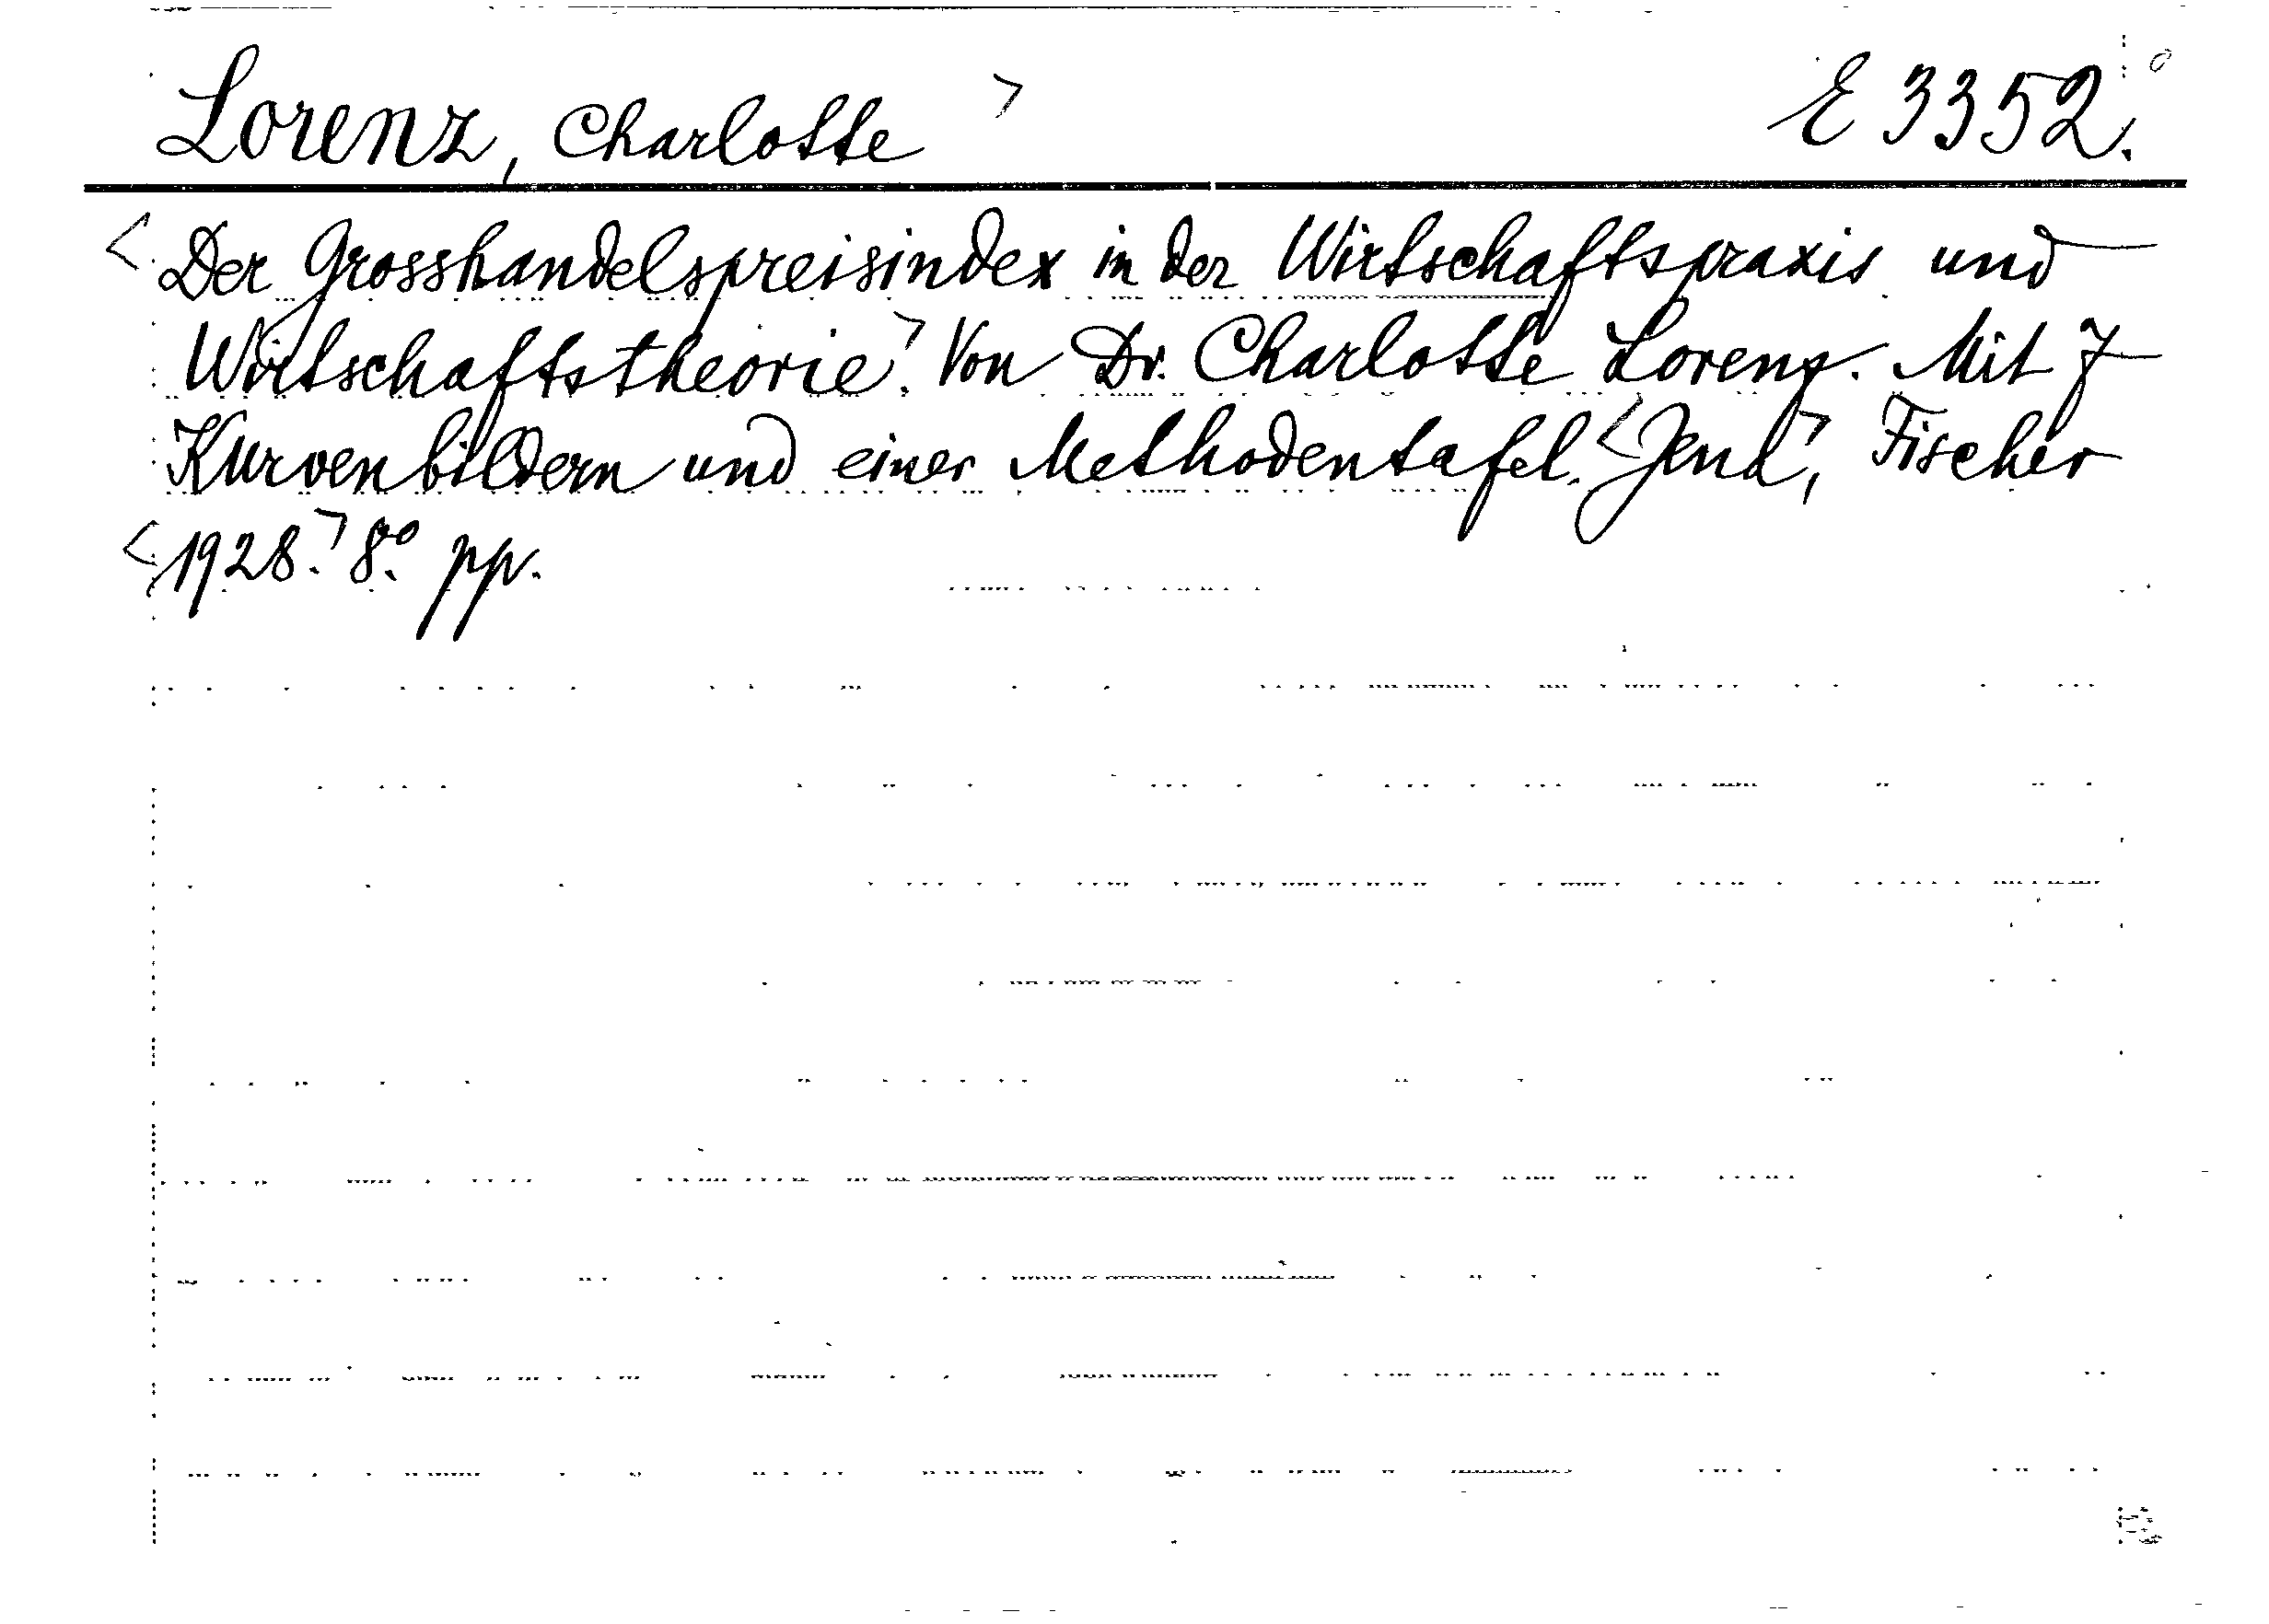 Lorenz, Charlotte > E 3352.
<Der Grosshandelspreisindex in der Wirtschaftspraxis und
Wirtschaftstheorie.> Von Dr. Charlotte Lorenz. Mit 7
Kurvenbildern und einer Methodentafel. <Jena>, Fischer
<1928.> 8.° pp.